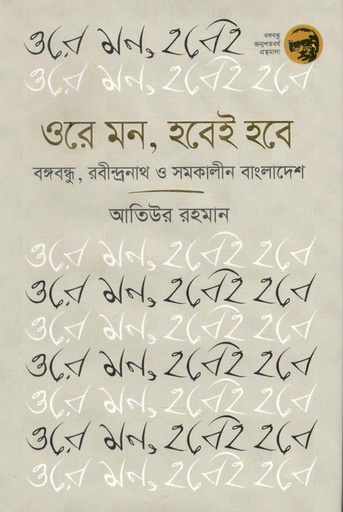 ওরে মন, হবেই
বঙ্গবন্ধু
জন্মশতবর্ষ
গ্রন্থমালা
ওরে মন, হবেই হবে
ওরে মন, হবেই হবে
বঙ্গবন্ধু, রবীন্দ্রনাথ ও সমকালীন বাংলাদেশ
আতিউর রহমান
ওরে মন, হবেই হবে
ওরে মন, হবেই হবে
ওরে মন, হবেই হবে
ওরে মন, হবেই হবে
ওরে মন, হবেই হবে
ওরে মন, হবেই হবে
ওরে মন, হবেই হবে